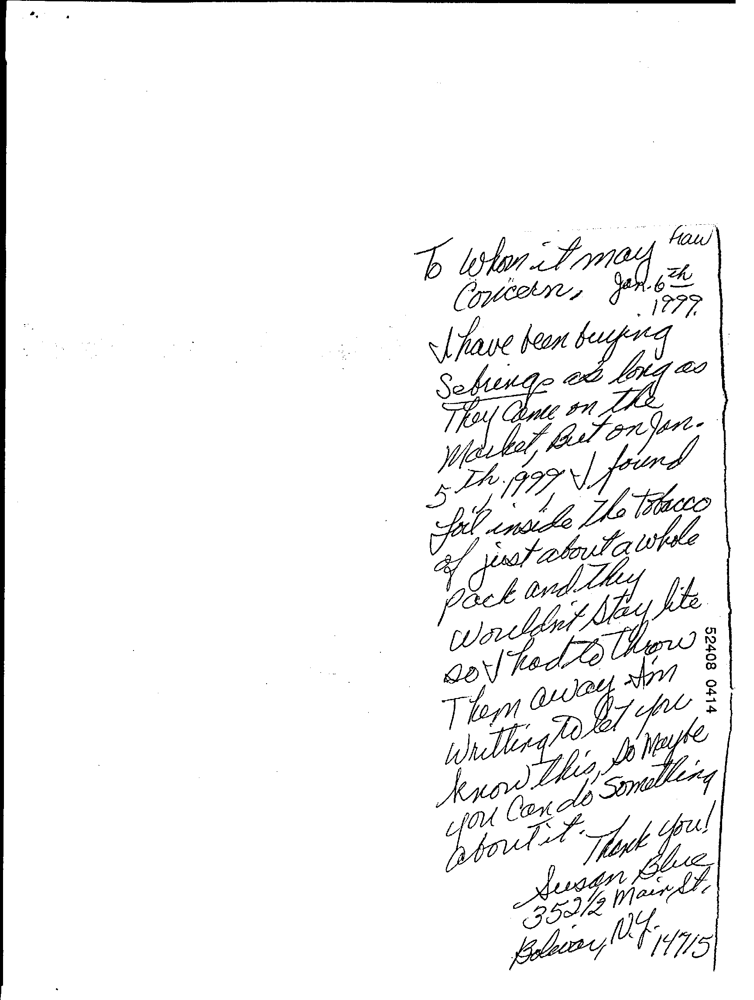 To Whom it may
Concern, Jan. 6th
1999.
I have been buying
Sebrings as long as
They Came on the
Market, But on Jan.
5th, 1999, I found
foil inside the Tobacco
of just about a whole
pack and they
wouldn't stay lite
so I had to throw
Them away. I'm
writting to let you
know this, so Maybe
you Can do Something
about it. Thank you!
Susan Blue
352 1/2 Main St.
Bolivar, N.Y. 14715
52408 0414